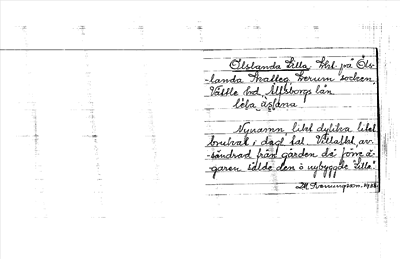 Ölslanda Lilla, hst. på Öls-
-landa Skatteg, Lerum socken,
Vättle hd, Älvsborgs län
lɛ́ba
Nynamn, litet dylika litet
brukat i dagl tal. Villastst, av-
söndrad från gården då förre ä-
garen sålde den o nybyggde "Lilla"
1933.